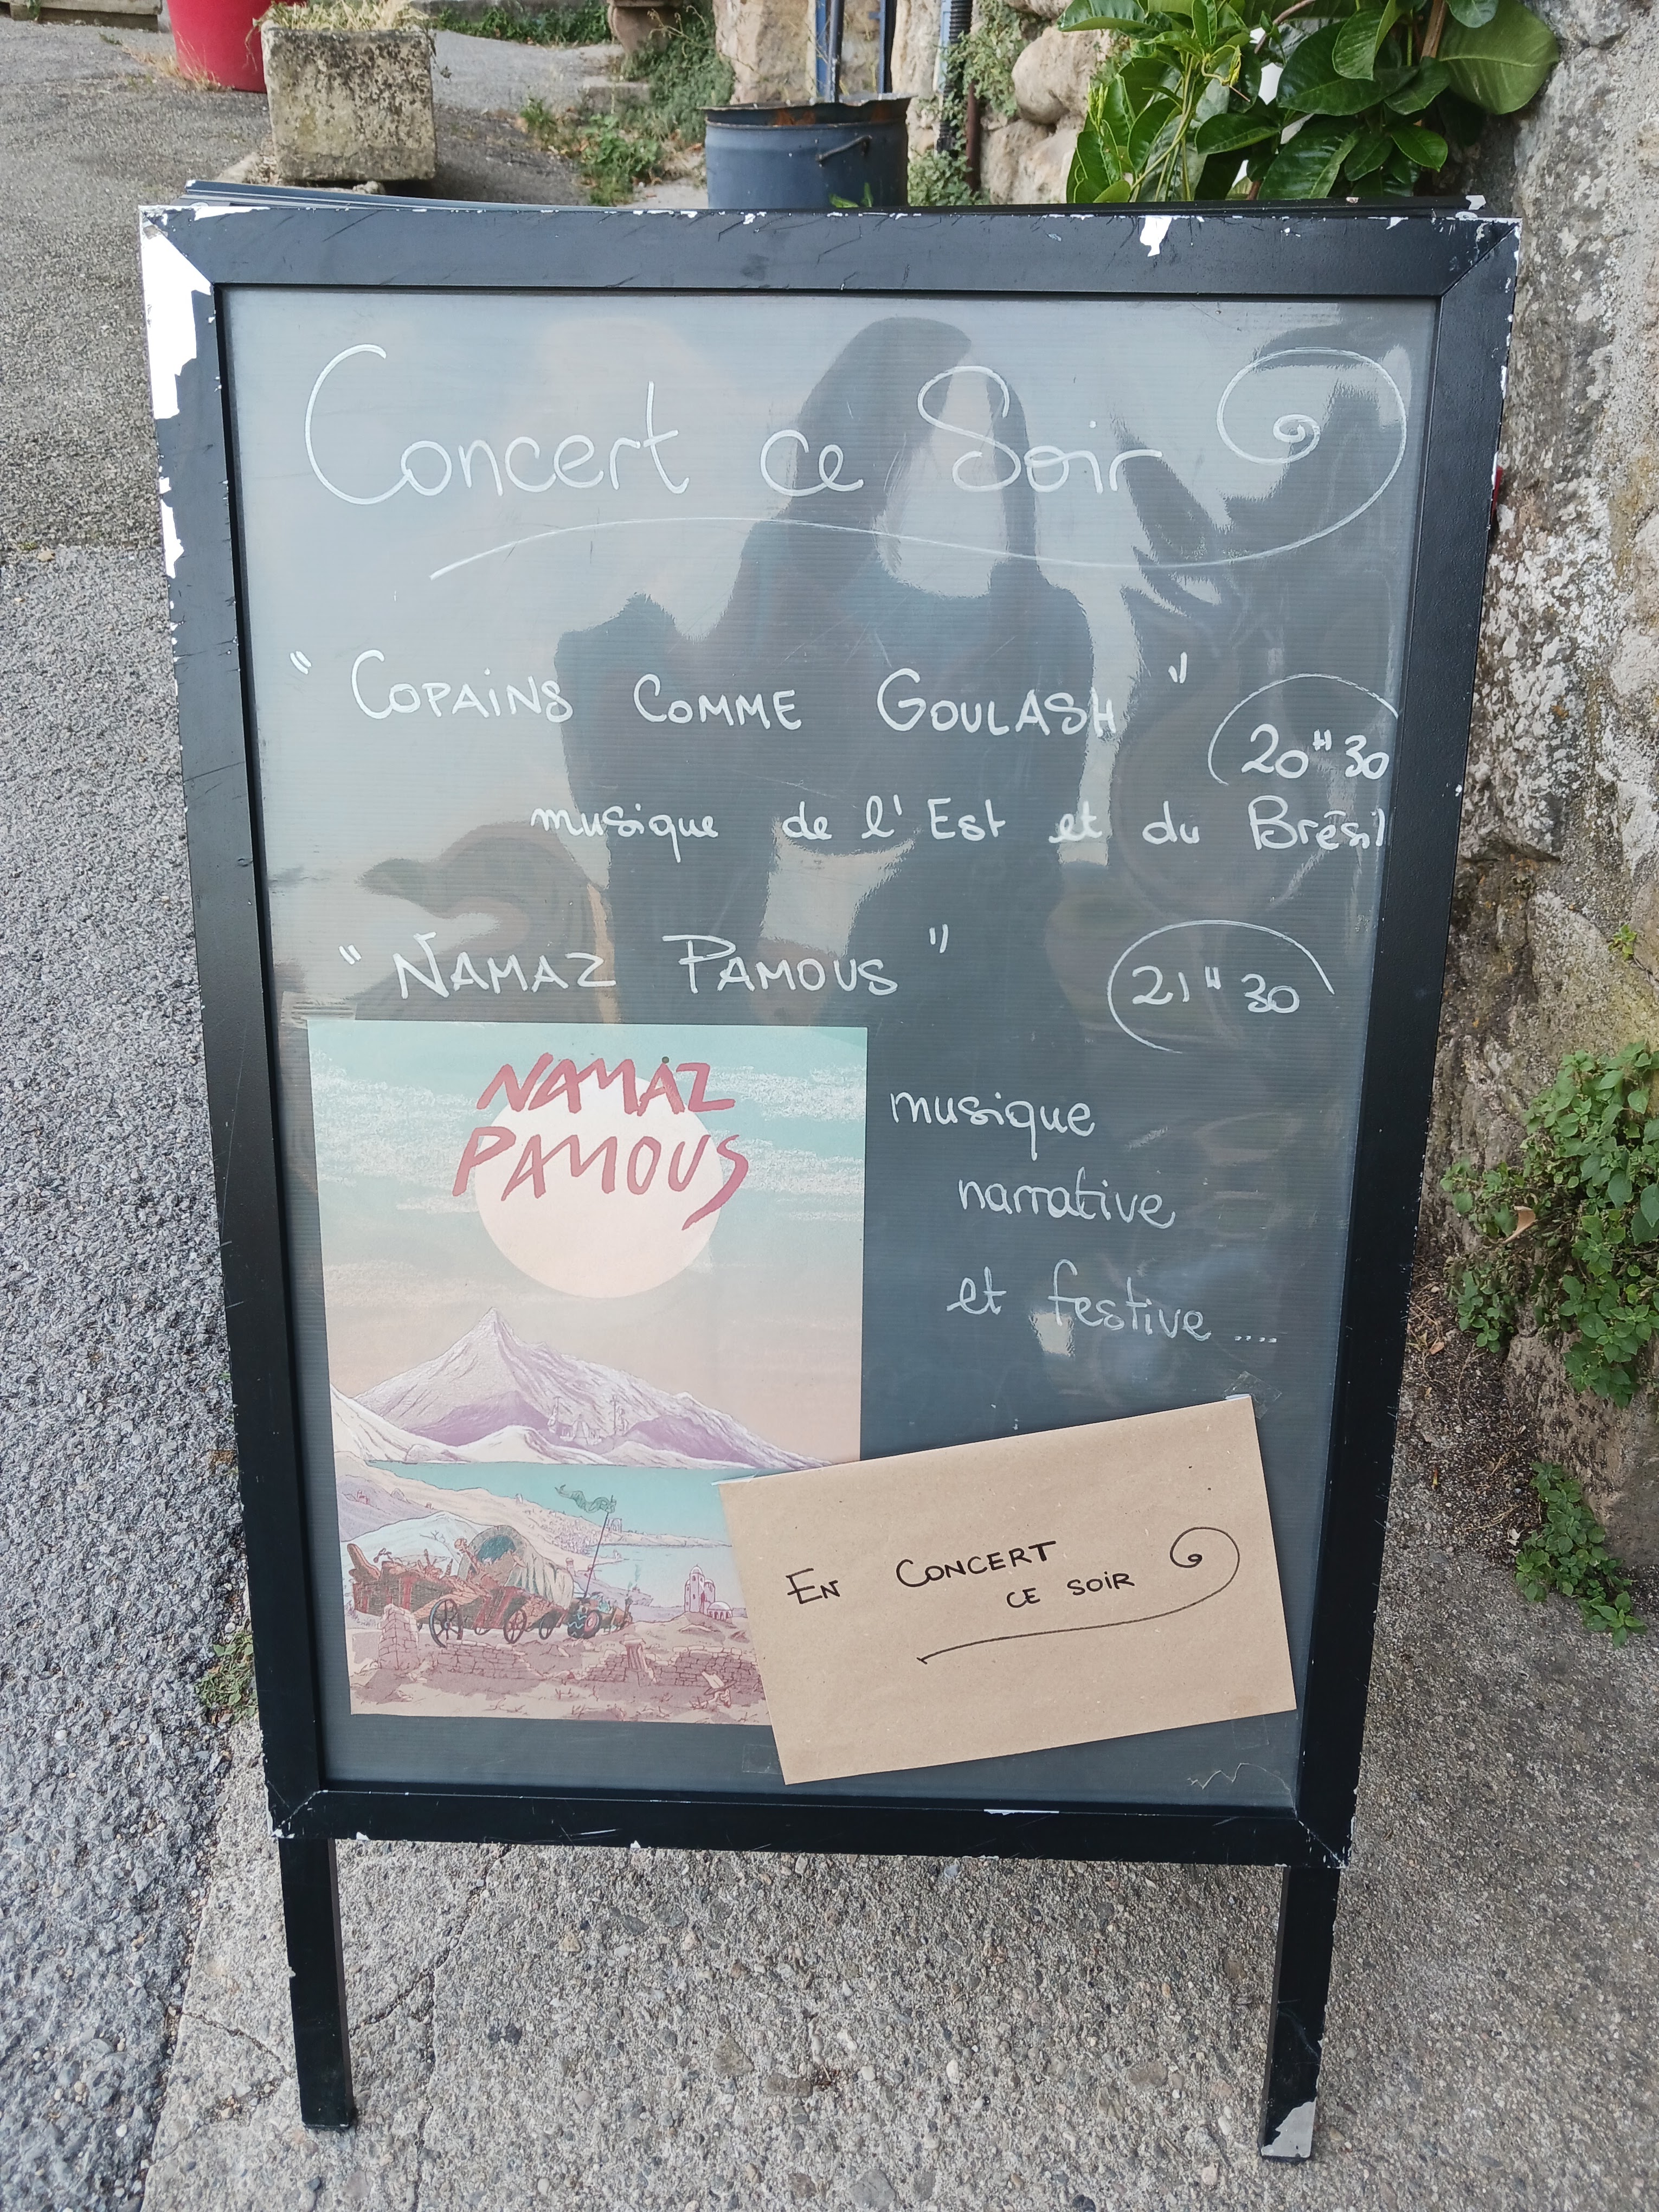 Concert ce Soir
" COPAINS COMME GOULASH "
20H30
musique de l'Est et du Brésil
" NAMAZ PAMOUS "
21H30
NAMAZ
PAMOUS
musique
narrative
et festive ....
EN CONCERT
CE SOIR